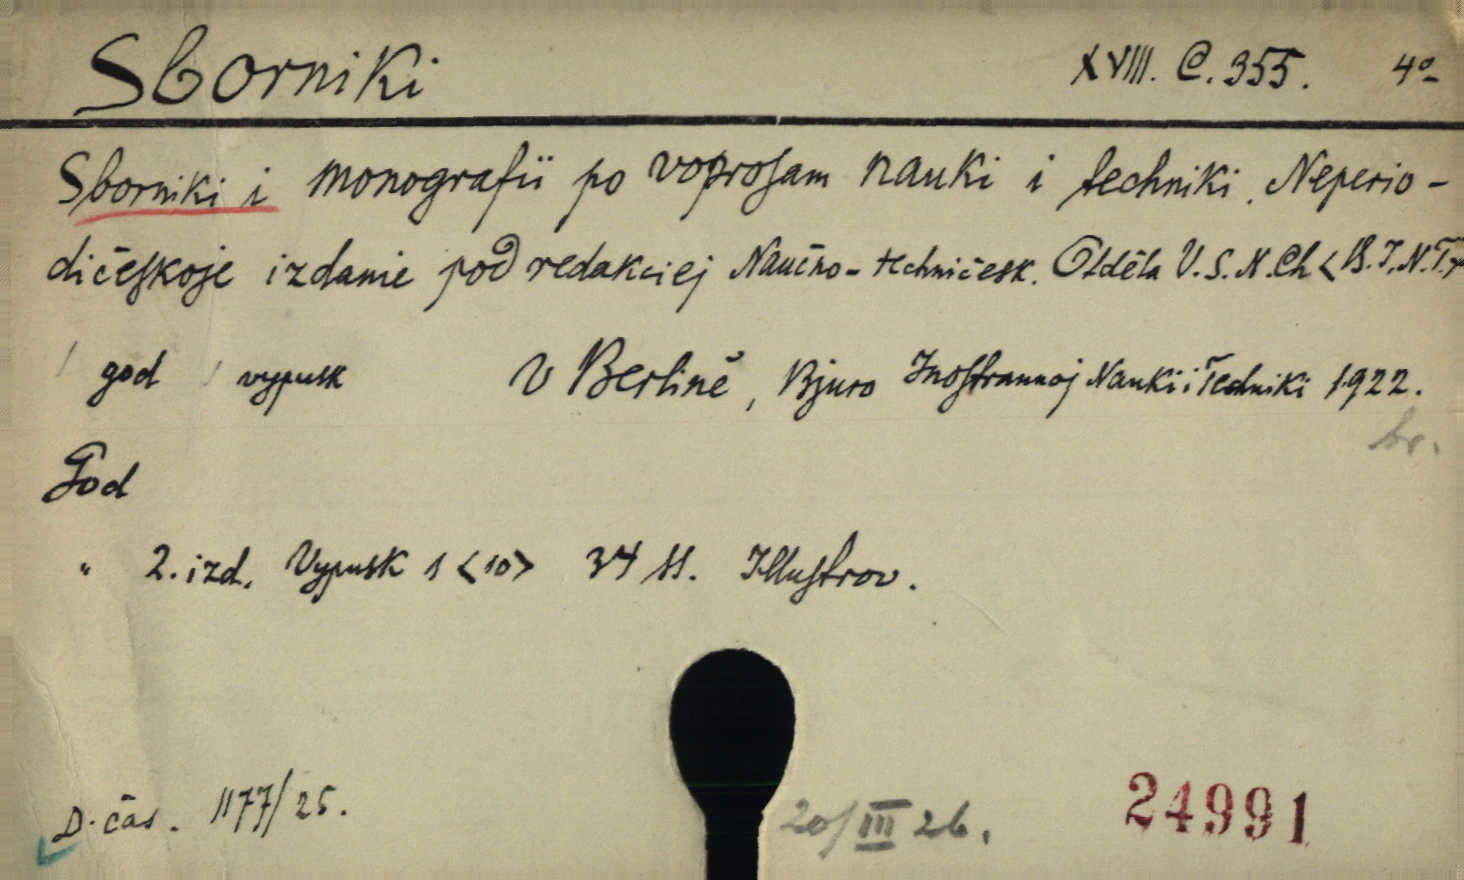 Sborniki XVIII. C. 355. 4°
Sborniki i monografii po voprosam nauki i techniki. Neperio-
dičeskoje izdanie pod redakciej Naučno-techničesk. Otděla V.S.N.Ch <B.I.N.T.>
god vypusk V Berlině, Bjuro Inostrannoj Nauki i Techniki 1922.
br.
God
" 2. izd. Vypusk 1 <10> 34 SS. Illustrov.
D. čas. 1177/25. 20/III 26. 24991